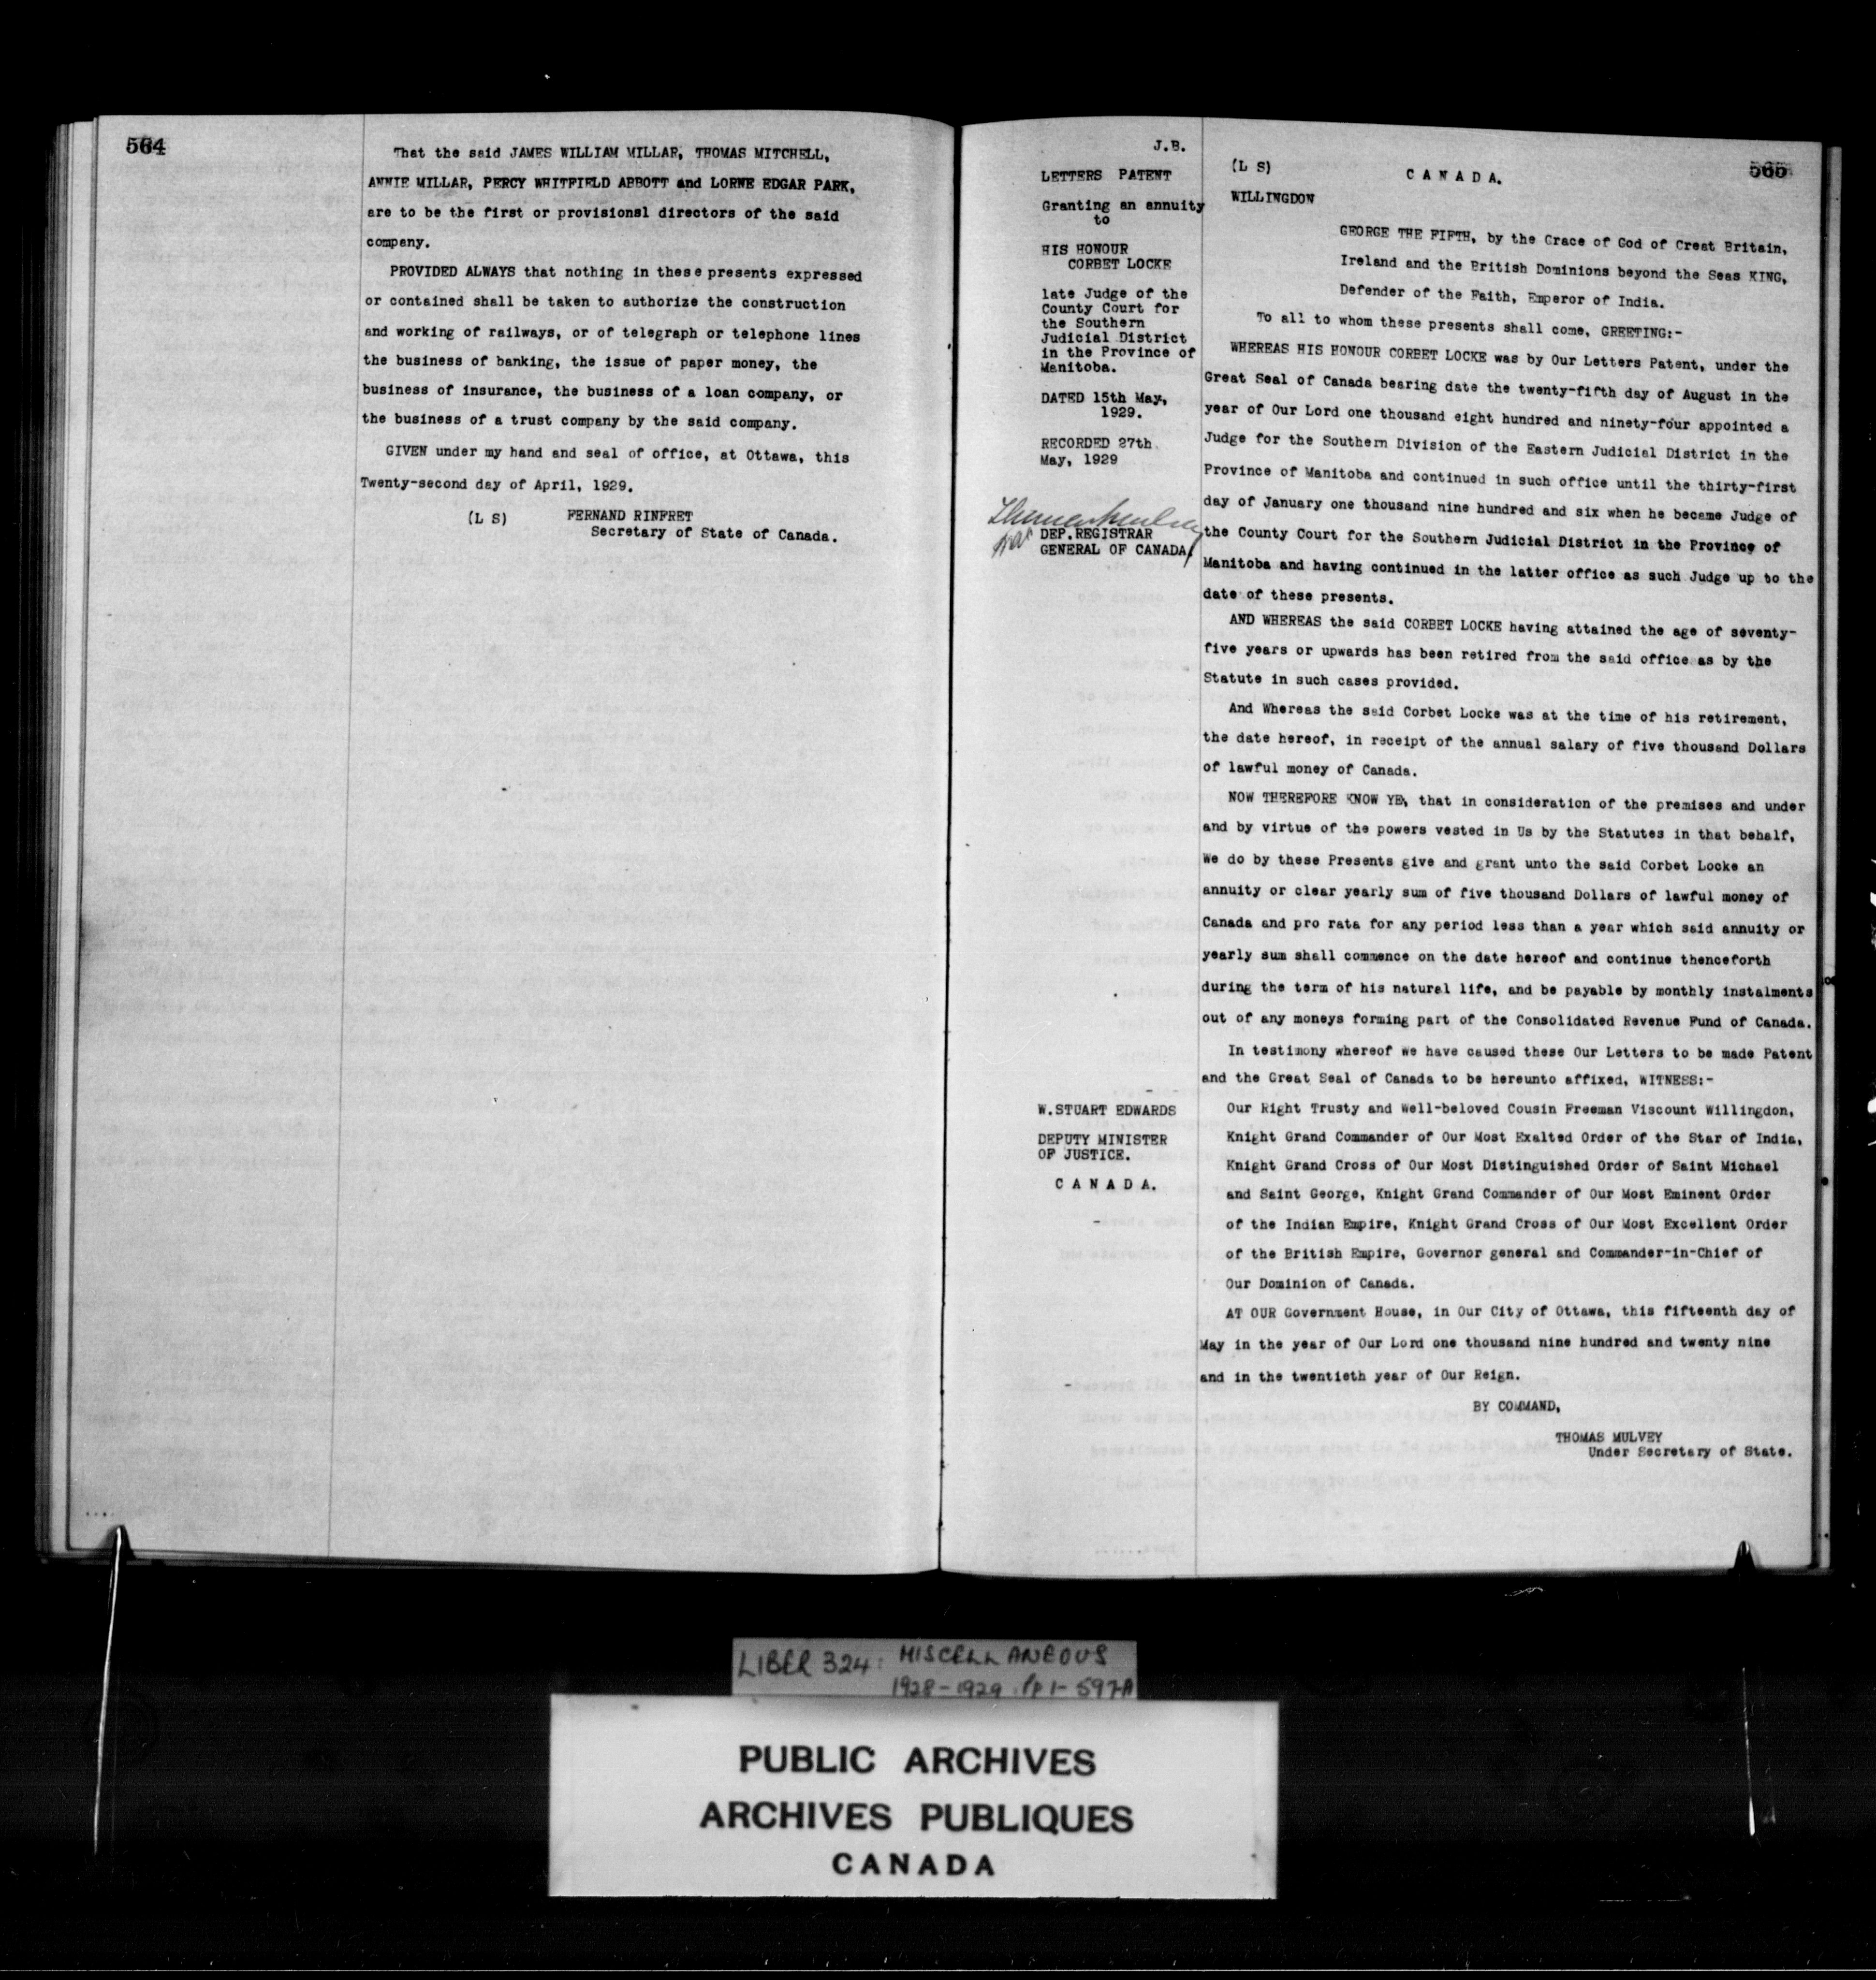 564
That the said JAMES WILLIAM MILLAR, THOMAS MITCHELL,
ANNIE MILLAR, PERCY WHITFIELD ABBOTT and LORNE EDGAR PARK,
are to be the first or provisional directors of the said
company.
PROVIDED ALWAYS that nothing in these presents expressed
or contained shall be taken to authorize the construction
and working of railways, or of telegraph or telephone lines
the business of banking, the issue of paper money, the
business of insurance, the business of a loan company, or
the business of a trust company by the said company.
GIVEN under my hand and seal of office, at Ottawa, this
Twenty-second day of April, 1929.
(L S) FERNAND RINFRET
Secretary of State of Canada.
565
J.B.
LETTERS PATENT
Granting an annuity
to
HIS HONOUR
CORBET LOCKE
late Judge of the
County Court for
the Southern
Judicial District
in the Province of
Manitoba.
DATED 15th May,
1929.
RECORDED 27th
May, 1929
DEP.REGISTRAR
GENERAL OF CANADA
W.STUART EDWARDS
DEPUTY MINISTER
OF JUSTICE.
C A N A D A.
(L S) C A N A D A.
WILLINGDON
GEORGE THE FIFTH, by the Grace of God of Great Britain,
Ireland and the British Dominions beyond the Seas KING,
Defender of the Faith, Emperor of India.
To all to whom these presents shall come, GREETING:-
WHEREAS HIS HONOUR CORBET LOCKE was by Our Letters Patent, under the
Great Seal of Canada bearing date the twenty-fifth day of August in the
year of Our Lord one thousand eight hundred and ninety-four appointed a
Judge for the Southern Division of the Eastern Judicial District in the
Province of Manitoba and continued in such office until the thirty-first
day of January one thousand nine hundred and six when he became Judge of
the County Court for the Southern Judicial District in the Province of
Manitoba and having continued in the latter office as such Judge up to the
date of these presents.
AND WHEREAS the said CORBET LOCKE having attained the age of seventy-
five years or upwards has been retired from the said office as by the
Statute in such cases provided.
And Whereas the said Corbet Locke was at the time of his retirement,
the date hereof, in receipt of the annual salary of five thousand Dollars
of lawful money of Canada.
NOW THEREFORE KNOW YE, that in consideration of the premises and under
and by virtue of the powers vested in Us by the Statutes in that behalf,
We do by these Presents give and grant unto the said Corbet Locke an
annuity or clear yearly sum of five thousand Dollars of lawful money of
Canada and pro rata for any period less than a year which said annuity or
yearly sum shall commence on the date hereof and continue thenceforth
during the term of his natural life, and be payable by monthly instalments
out of any moneys forming part of the Consolidated Revenue Fund of Canada.
In testimony whereof we have caused these Our Letters to be made Patent
and the Great Seal of Canada to be hereunto affixed, WITNESS:-
Our Right Trusty and Well-beloved Cousin Freeman Viscount Willingdon,
Knight Grand Commander of Our Most Exalted Order of the Star of India,
Knight Grand Cross of Our Most Distinguished Order of Saint Michael
and Saint George, Knight Grand Commander of Our Most Eminent Order
of the Indian Empire, Knight Grand Cross of Our Most Excellent Order
of the British Empire, Governor general and Commander-in-Chief of
Our Dominion of Canada.
AT OUR Government House, in Our City of Ottawa, this fifteenth day of
May in the year of Our Lord one thousand nine hundred and twenty nine
and in the twentieth year of Our Reign.
BY COMMAND,
THOMAS MULVEY
Under Secretary of State.
LIBER 324: MISCELLANEOUS
1928-1929 pp 1-597A
PUBLIC ARCHIVES
ARCHIVES PUBLIQUES
CANADA